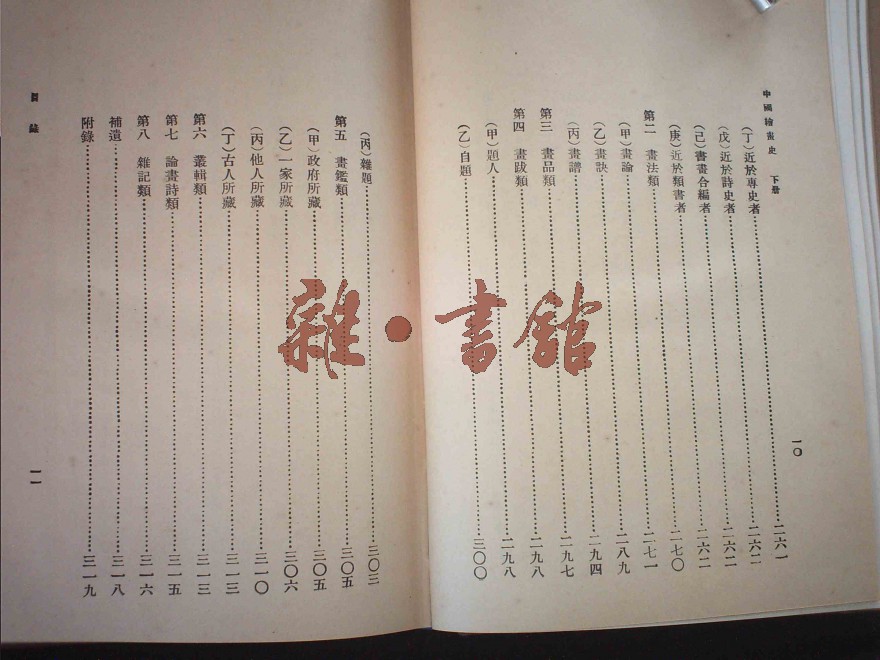 中國繪畫史 下册
(丁)近於專史者……二六一
(戊)近於詩史者……二六二
(己)書畫合編者……二六二
(庚)近於類書者……二七〇
第二 畫法類……二七一
(甲)畫論……二八九
(乙)畫訣……二九四
(丙)畫譜……二九七
第三 畫品類……二九八
第四 畫跋類……二九八
(甲)題人……二九八
(乙)自題……三〇〇
一〇
(丙)雜題……三〇三
第五 畫鑑類……三〇五
(甲)政府所藏……三〇五
(乙)一家所藏……三〇六
(丙)他人所藏……三一〇
(丁)古人所藏……三一三
第六 叢輯類……三一三
第七 論畫詩類……三一五
第八 雜記類……三一六
補遺……三一八
附錄……三一九
目錄
一一
雜·書館